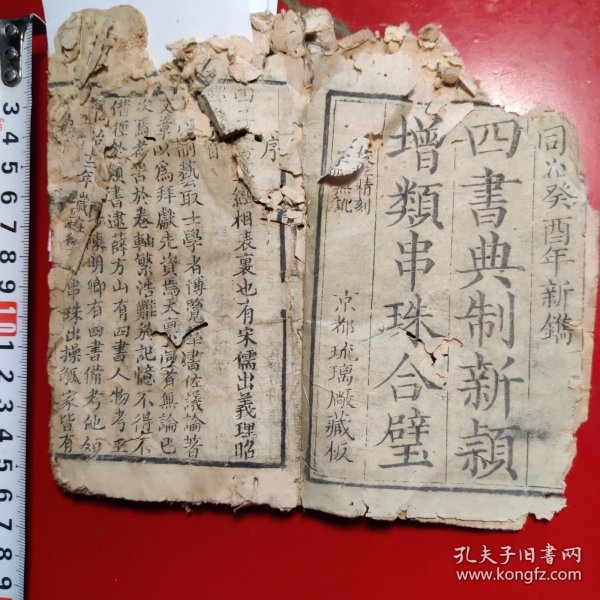 同治癸酉年新鐫
四書典制新穎
增類串珠合璧
京都琉璃廠藏板
校正精刻
無訛
序
經相表裏也有宋儒出義理昭
制藝取士學者博覽羣書佐議論著
文章以爲拜獻先資
者無論已
次焉者苦於卷軸繁浩難於記憶不得不
借徑於類書逮薛方山有四書人物考
陳明卿有四書備考他如
串珠出操觚家皆有
孔夫子旧书网
www.kongfz.com
3 4 5 6 7 8 9 10 1 2 3 4 5 6 7 8 9